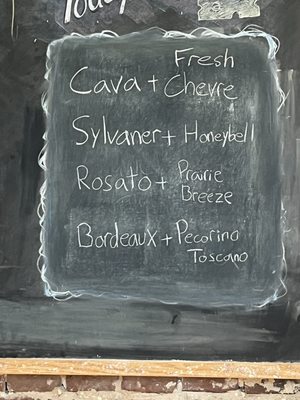 Cava + Fresh Chevre
Sylvaner + Honeybell
Rosato + Prairie Breeze
Bordeaux + Pecorino Toscano